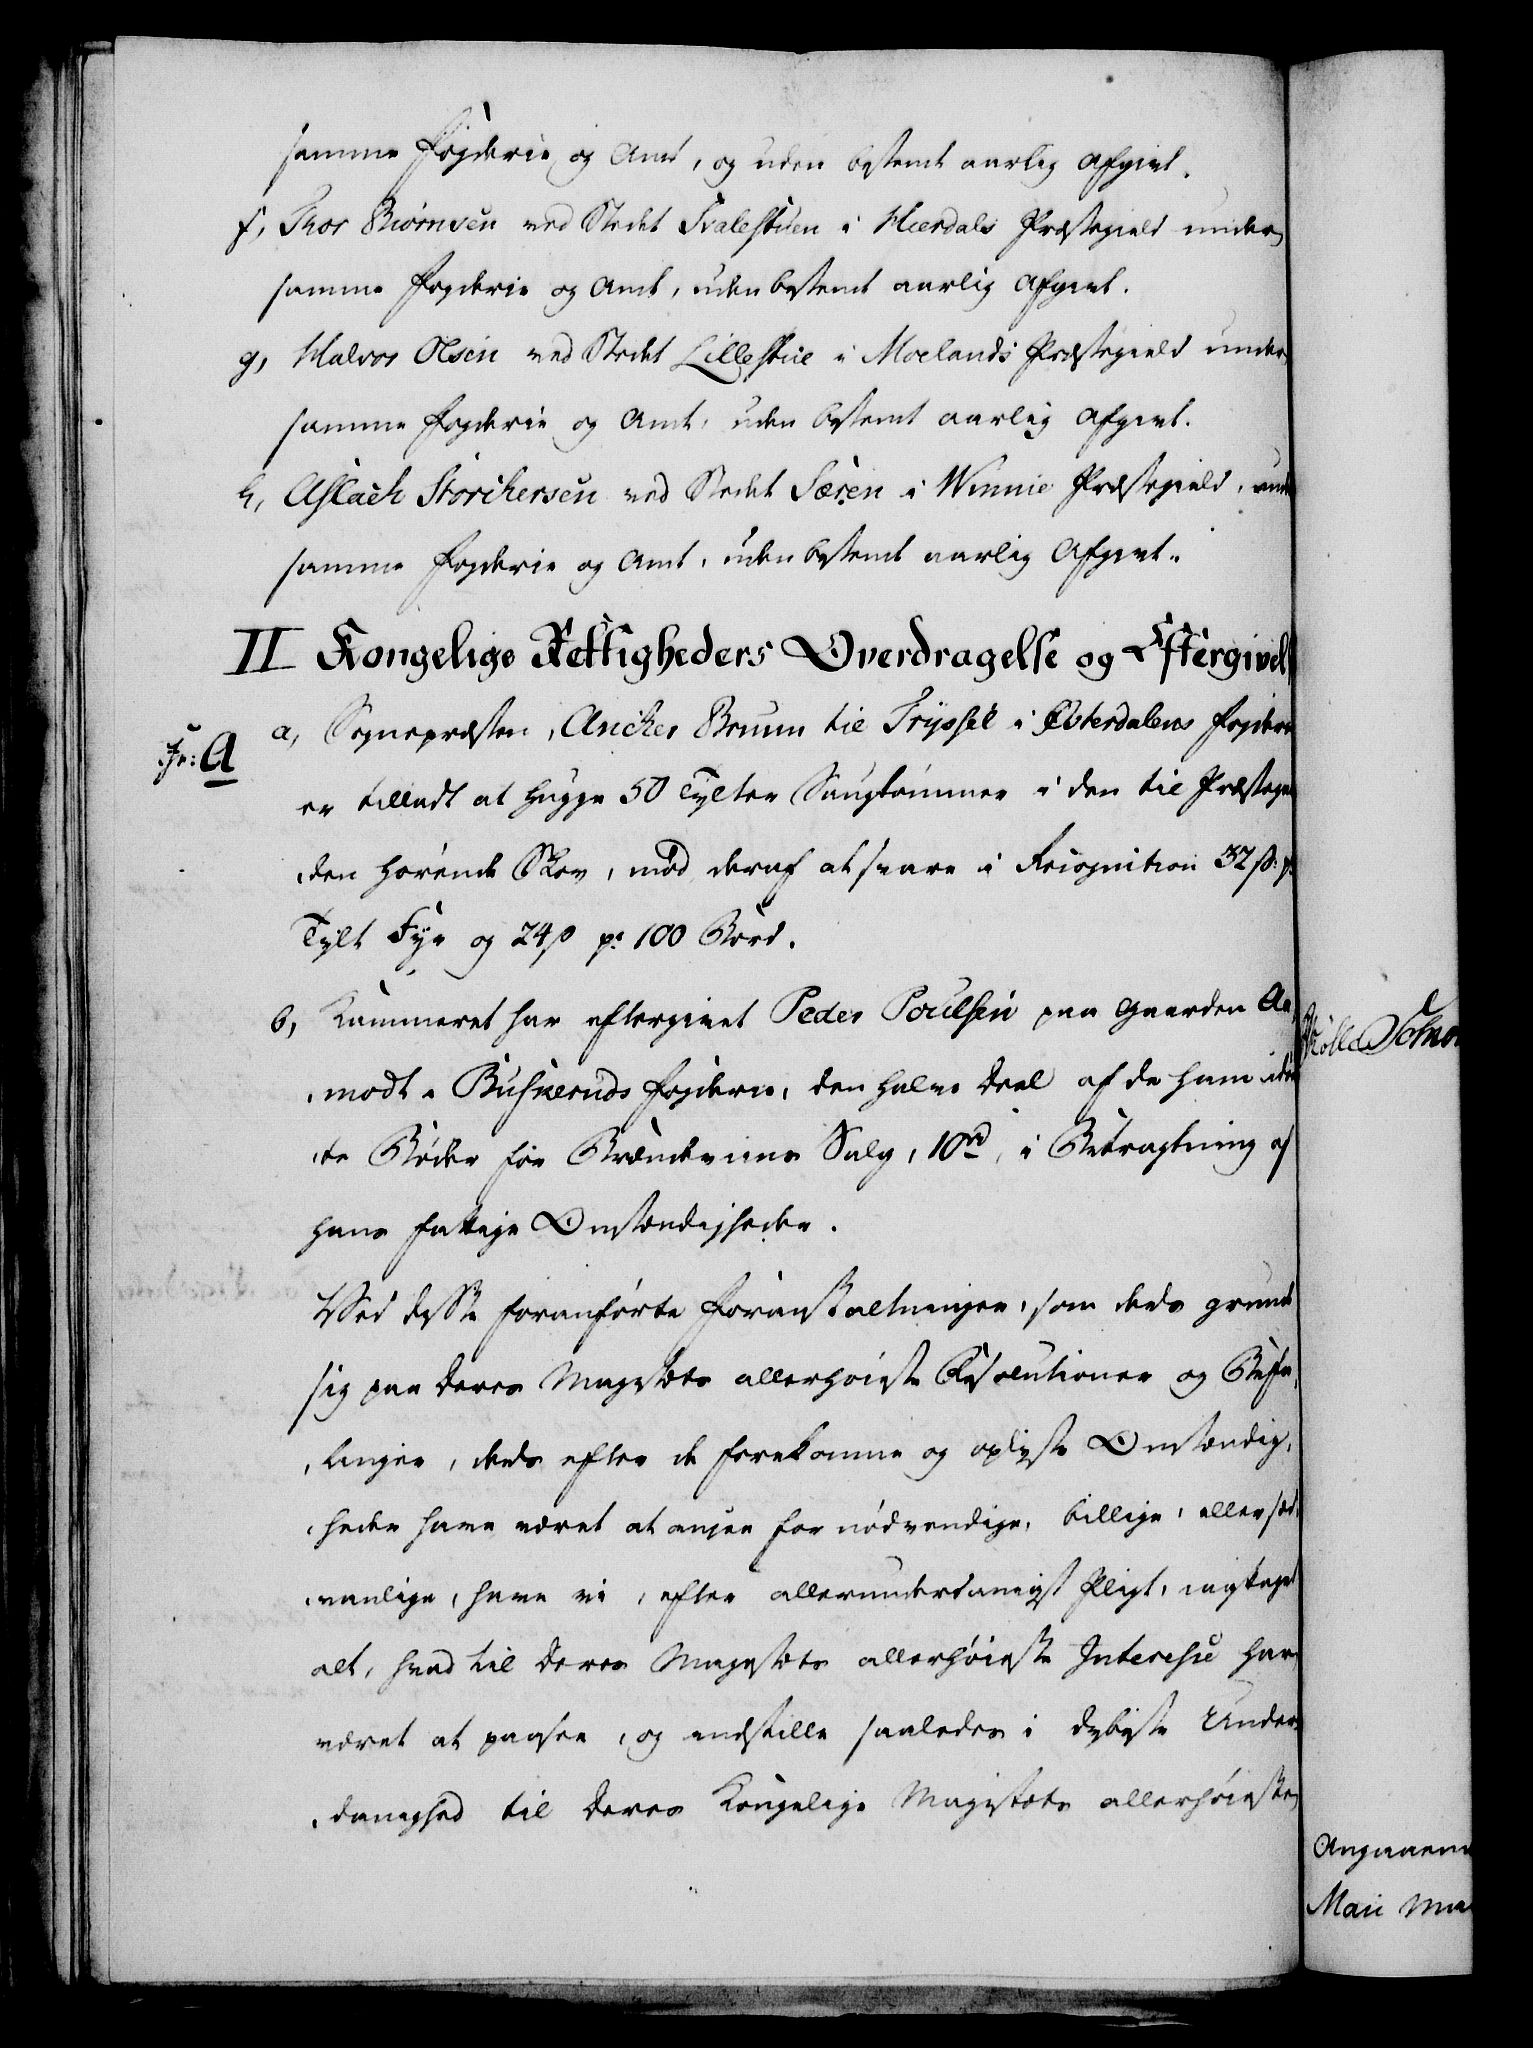 samme Fogderie og Amt, og uden bestemt aarlig Afgivt.
f, Thor Biørnsen ved Stedet Svalestuen i Hierdals Præstegield under
samme Fogderie og Amt, uden bestemt aarlig Afgivt.
g, Halvor Olsen ved Stedet Lillestue i Moelands Præstegield under
samme Fogderie og Amt, uden bestemt aarlig Afgivt.
h, Aslach Storchersen ved Stedet Særen i Winnie Præstegield, unde
samme Fogderie og Amt, uden bestemt aarlig Afgivt.
II Kongelige Rettigheders Overdragelse og Eftergivels
Fr: A
a, Sognepræsten, Ancher Bruun til Tryssel i Østerdalens Fogderie
er tilladt at hugge 50 Tylter Saugtømmer i den til Præstegaar
den hørende Skov, mod deraf at svare i Recognition 32 ß: p:
Tylt Fyr og 24 ß p: 100 Bord.
b, Kammeret har eftergivet Peder Poulsen paa Gaarden Aa
modt i Buskeruds Fogderie, den halve Deel af de ham idøm
te Bøder for Brændeviins Salg, 10 rd, i Betragtning af
hans fattige Omstændigheder.
Ved disse foranførte Foranstaltninger, som deels grunde
sig paa Deres Majestæts allerhøieste Resolutioner og Befa
linger, deels efter de forekomne og oplyste Omstændig
heder have været at ansee for nødvendige, billige, eller sæd
vanlige, have vi, efter allerunderdanigst Pligt, iagttaget
alt, hvad til Deres Majestæts allerhøieste Interesse har
været at paasee, og indstille saaledes i dybeste Under
danighed til Deres Kongelige Majestæts allerhøieste
Angaaen
Mari